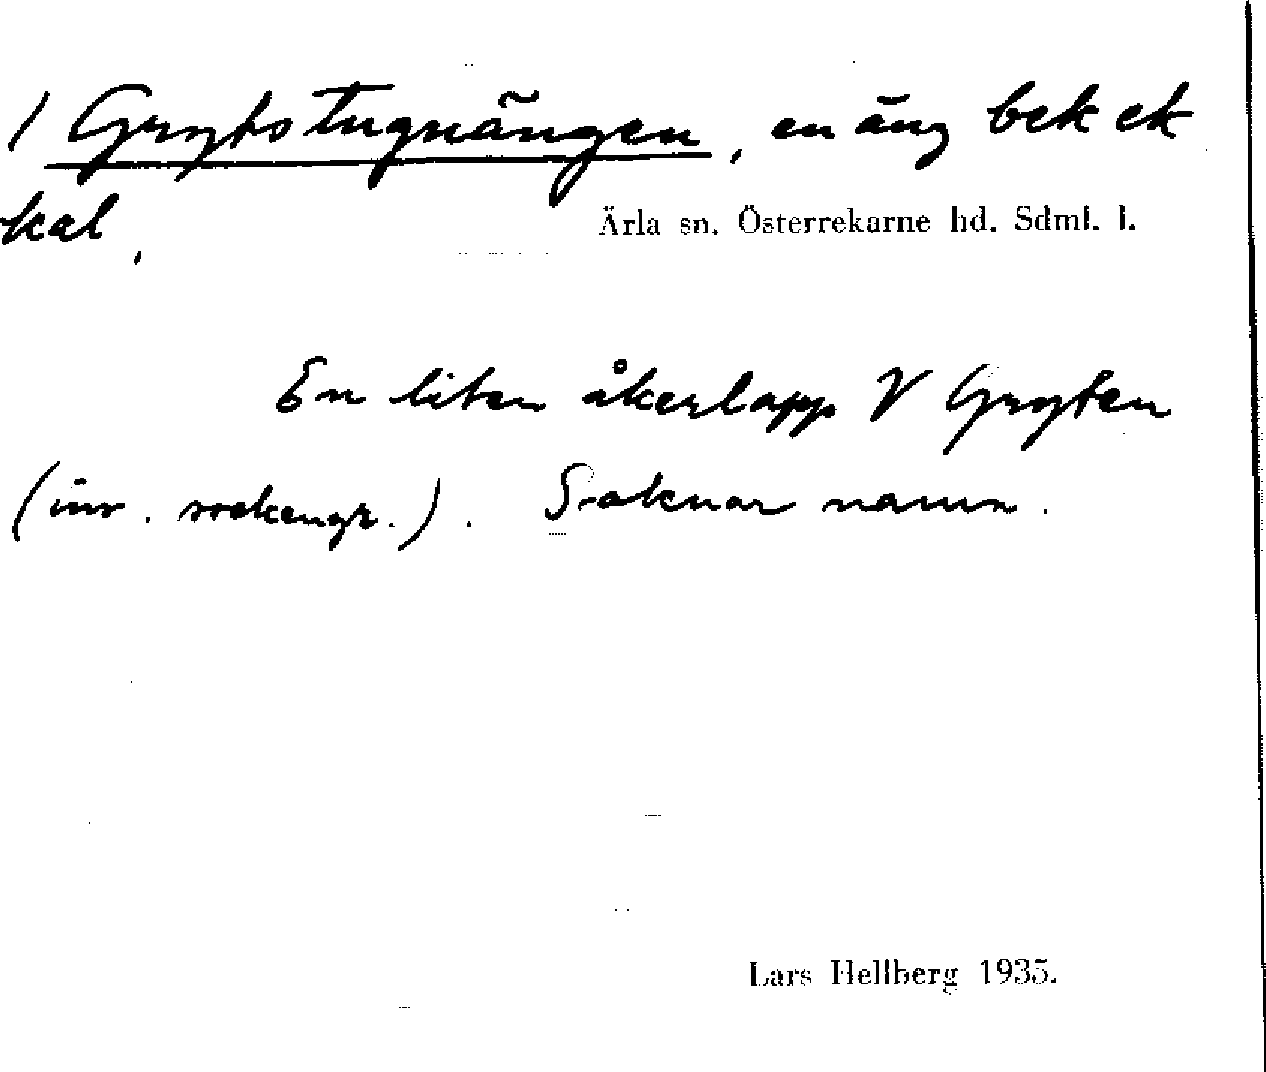 / Grytstugnängen, en äng bek ek
kal,
Ärla sn. Österrekarne hd. Sdml. l.
En liten åkerlapp V Gryten
(inv. sockengr.). Saknar namn.
Lars Hellberg 1935.